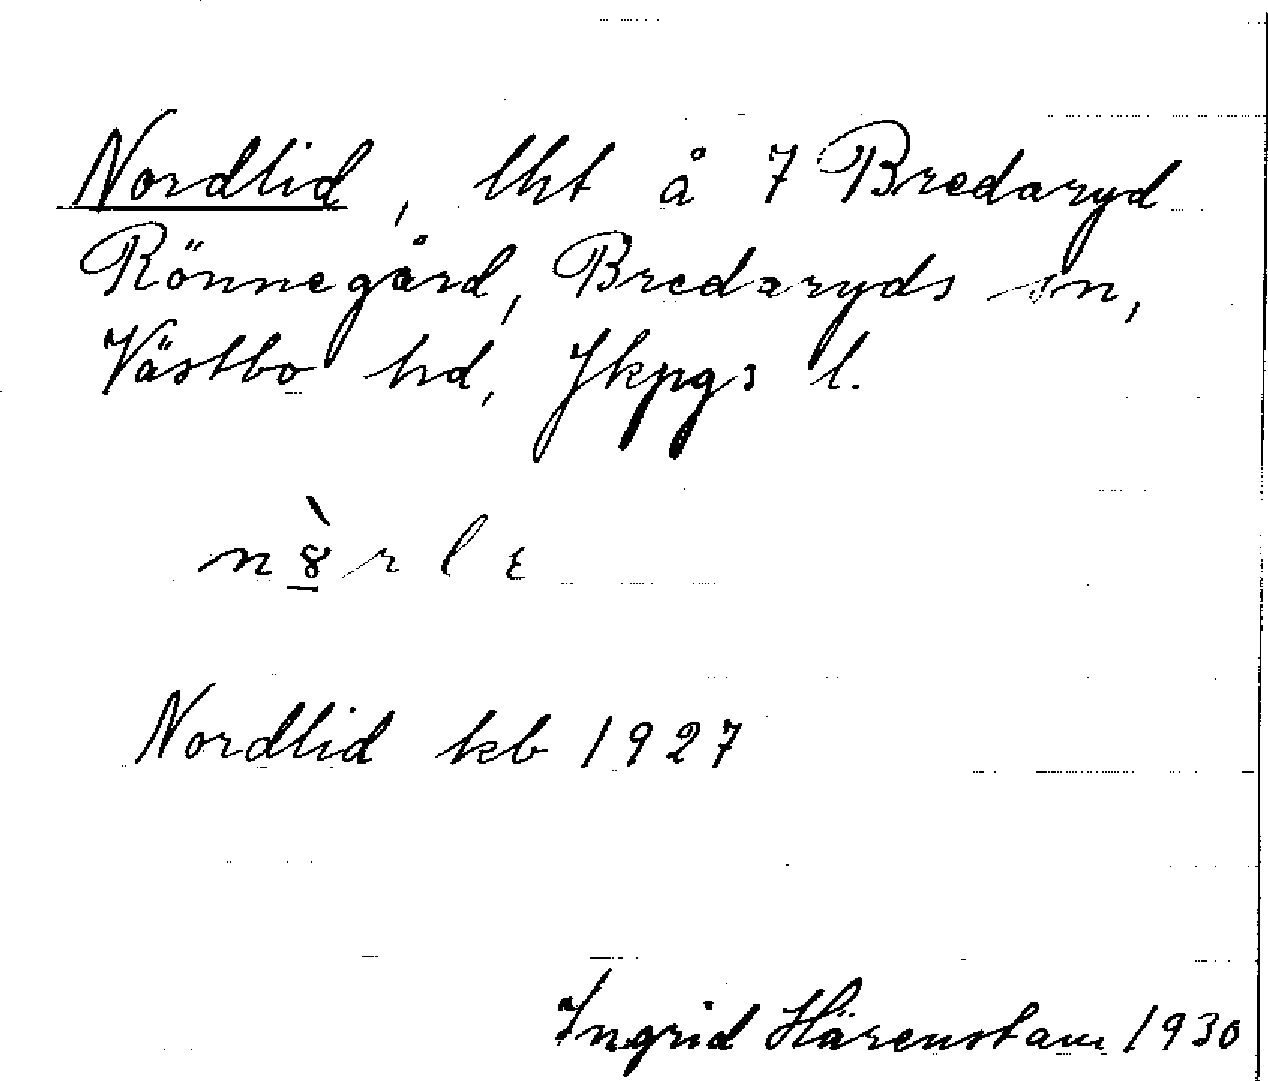 Nordlid, lht å 7 Bredaryd
Rönnegård, Bredaryds sn,
Västbo hd, Jkpgs l.
Nordlid kb 1927
Ingrid Härenstam 1930